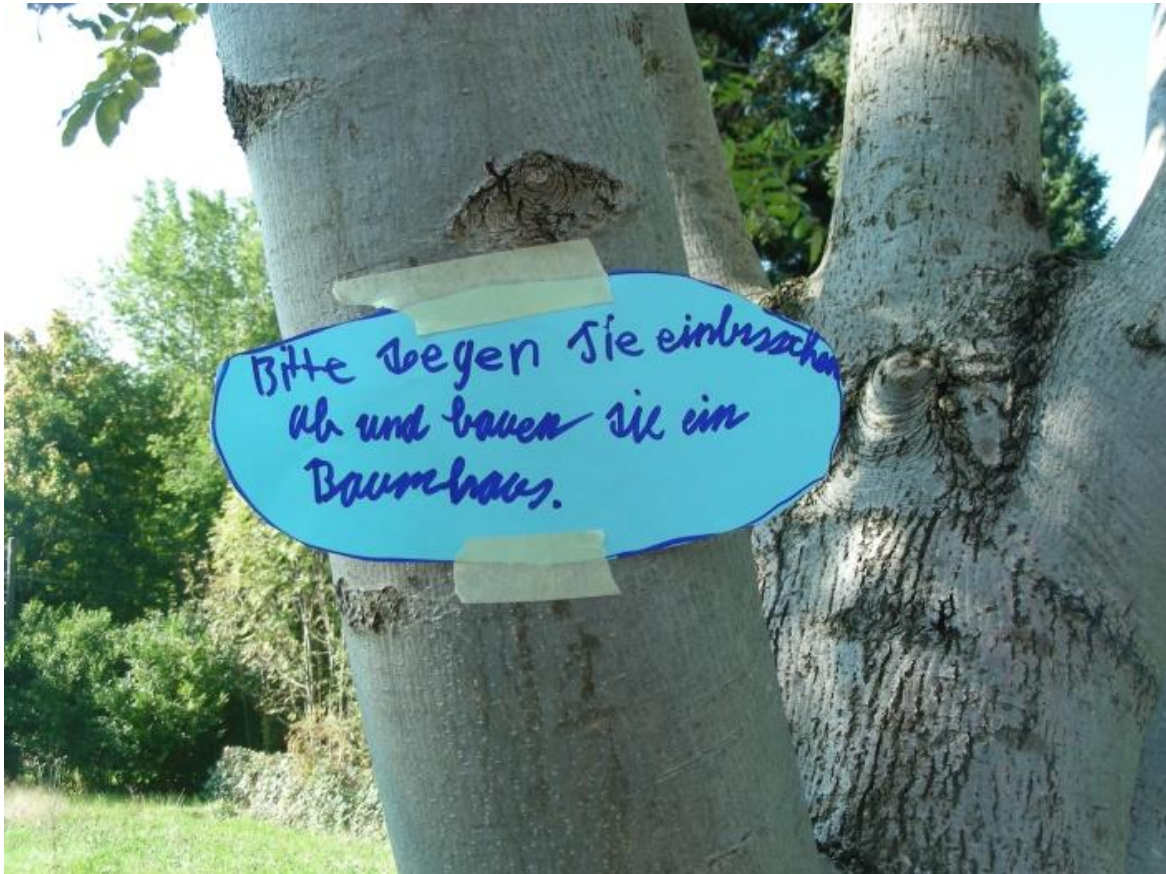 Bitte segen Sie einbisschen
ab und bauen sie ein
Baumhaus.